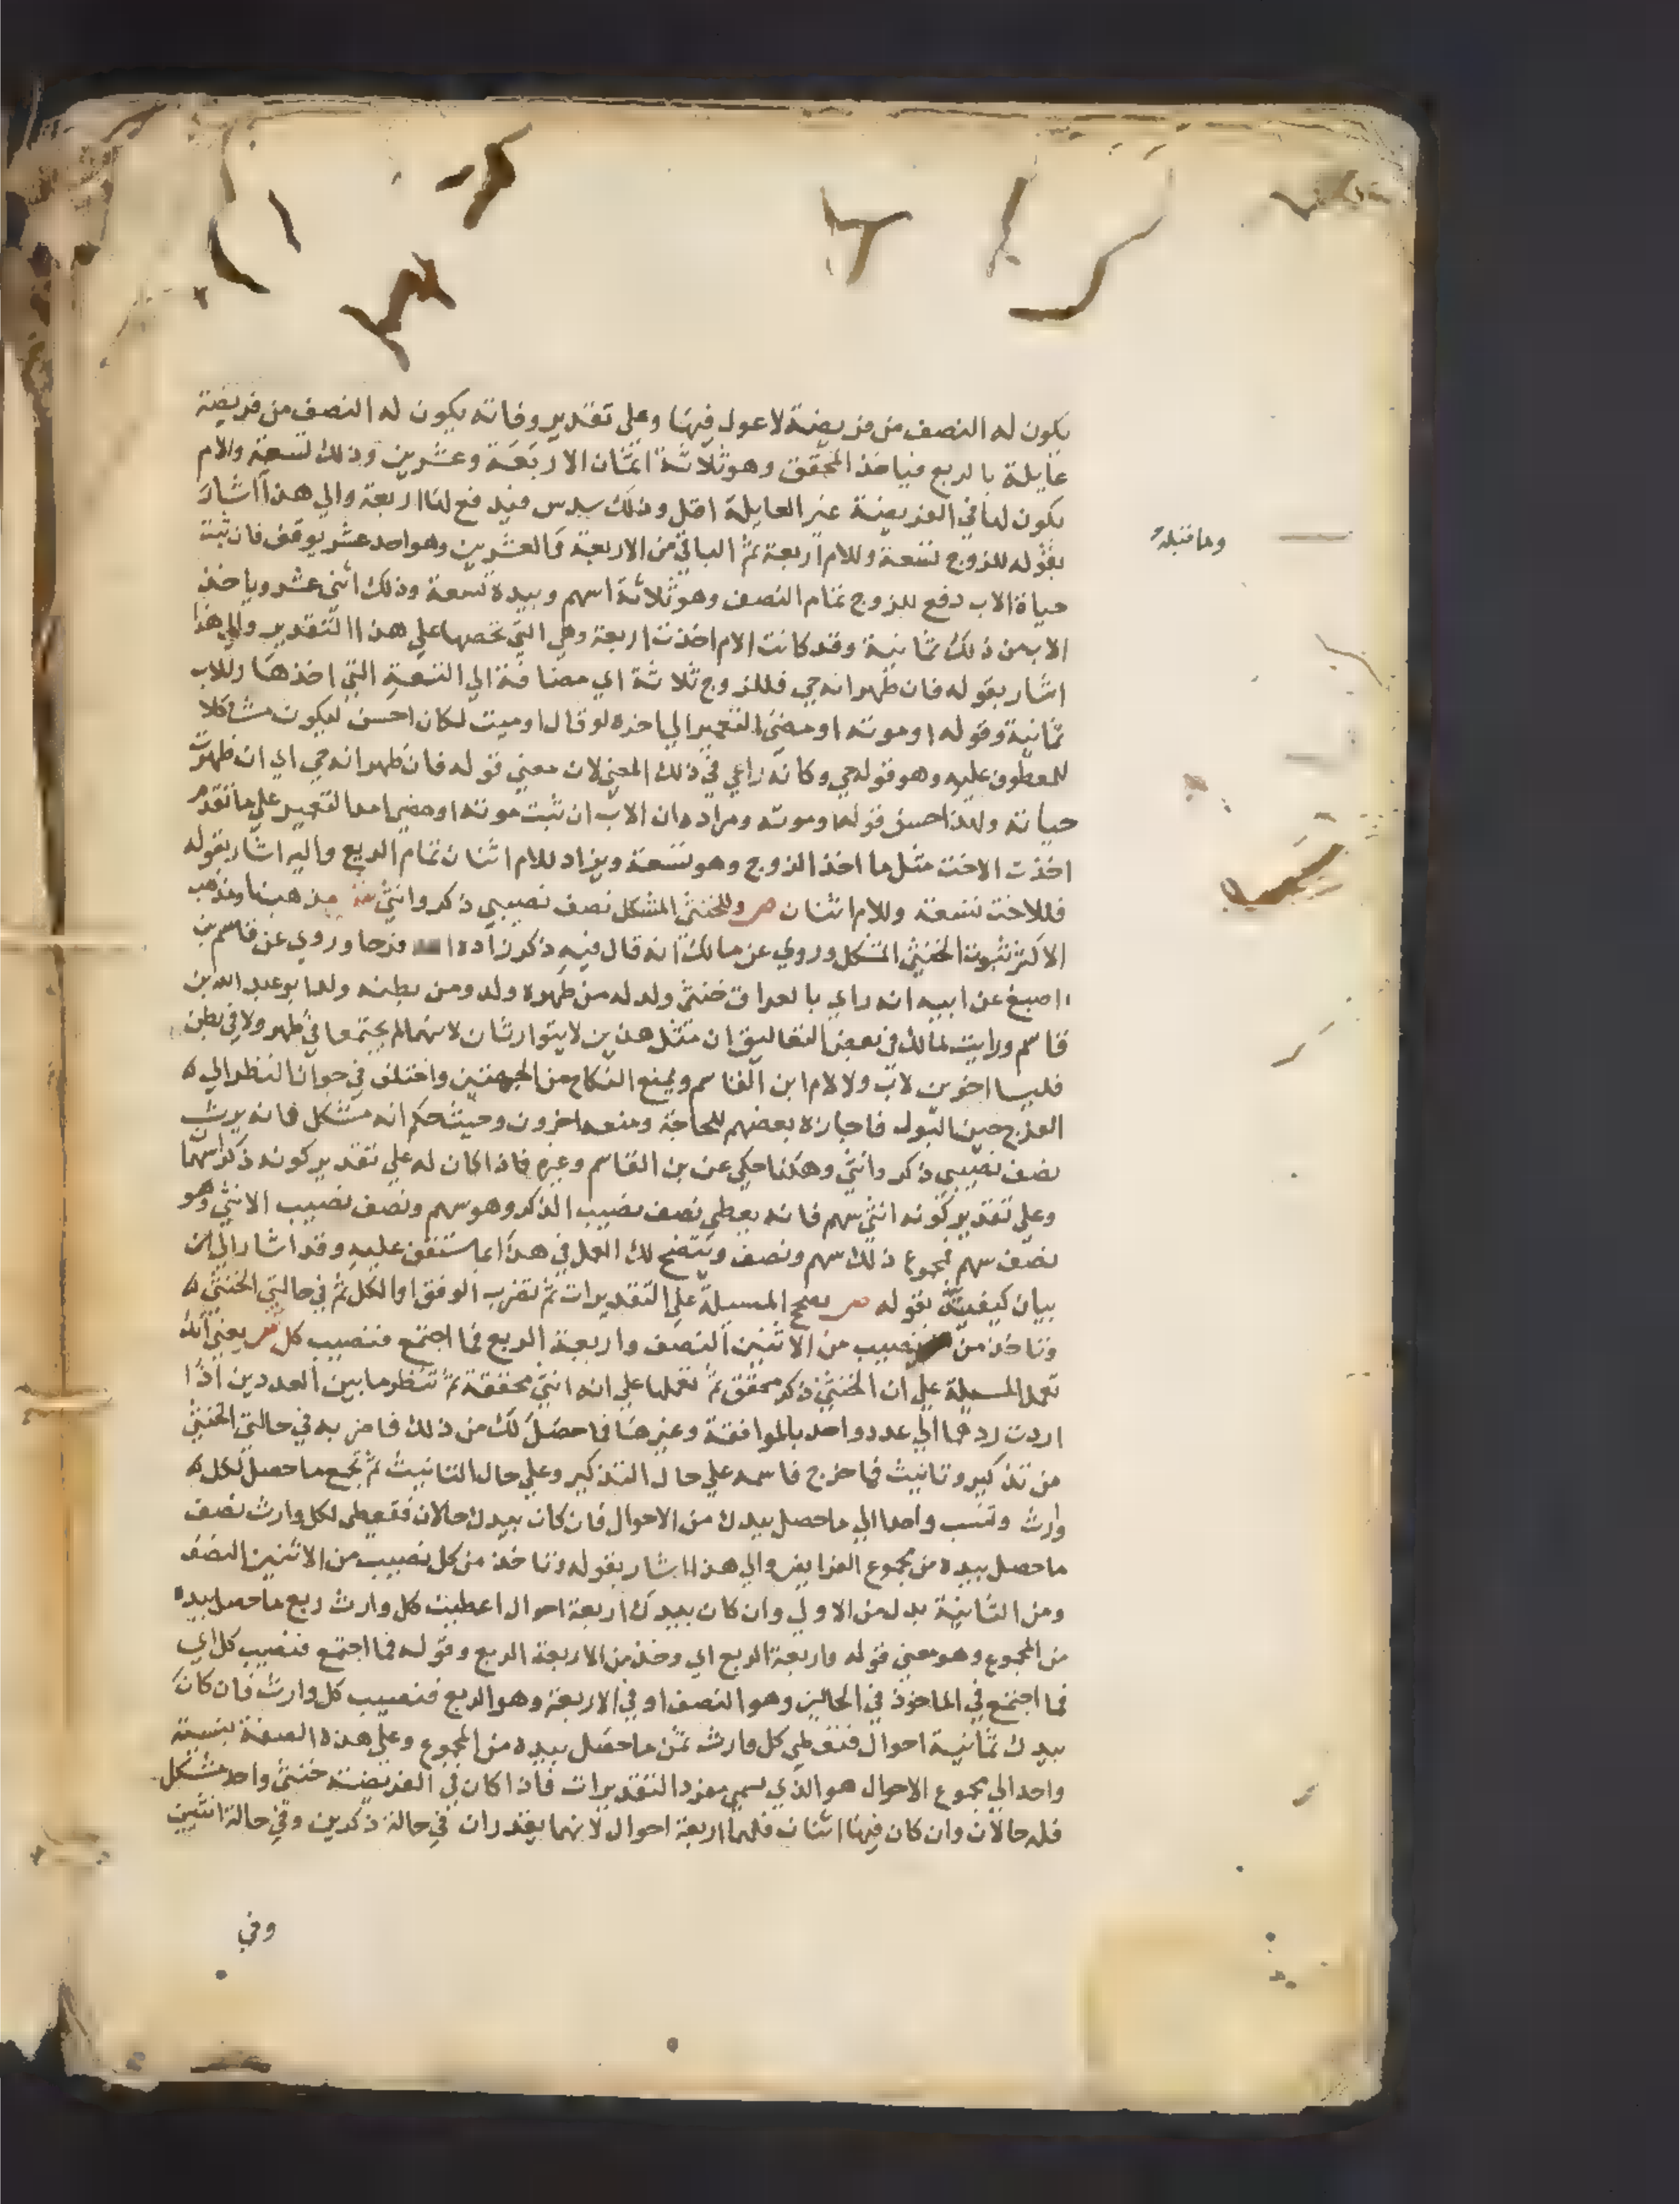 يكون له النصف من فريضة لا عول فيها وعلي تقدير وفاته يكون له النصف من فريضة
عايلة بالربع فياخذ المحقق وهو ثلاثة اثمان الاربعة وعشرين وذلك تسعة والام
يكون لها في الفريضة غير العايلة اقل وذلك سدس فيدفع لها اربعة والي هذا اشار
بقوله للزوج تسعة وللام اربعة ثم الباقي من الاربعة والعشرين وهو احد عشر يوقف فان ثبت
حياة الاب دفع للزوج تمام النصف وهو ثلاثة اسهم وبيده تسعة وذلك اثني عشر وياخذ
الاب من ذلك ثمانية وقد كانت الام اخذت اربعة وهي التي تخصها علي هذا التقدير والي هذا
اشار بقوله فان ظهر انه حي فللزوج ثلاثة اي مضافة الي التسعة التي اخذها وللاب
ثمانية وقوله او موته او مضي التعمير الي اخره لو قال او ميت لكان احسن ليكون مشاكلا
للمعطوف عليه وهو قوله حي وكانه راعي في ذلك المعني لان معني قوله فان ظهر انه حي اي ان ظهرت
حياته ولهذا احسن قوله او موته ومراده ان الاب ان ثبت موته او مضي امد التعمير علي ما تقدم
اخذت الاخت مثل ما اخذ الزوج وهو تسعة ويزاد للام اثنان تمام الربع واليه اشار بقوله
فللاخت تسعة وللام اثنان ص وللخنثي المشكل نصف نصيبي ذكر وانثي مذهبنا ومذهب
الاكثر ثبوت الخنثي المشكل وروي عن مالك انه قال فيه ذكر زاده فرجا وروي عن قاسم بن
اصبغ عن ابيه انه راي بالعراق خنثي ولد له من ظهره ولد ومن بطنه ولد ابو عبد الله بن
قاسم ورايت لمالك في بعض التعاليق ان مثل هذين لا يتوارثان لانهما لم يجتمعا في ظهر ولا في بطن
فليسا اخوين لاب ولا لام ابن القاسم ويمنع النكاح من الجهتين واختلف في جواز النظر الي
الفرج حين البول فاجازه بعضهم للحاجة ومنعه اخرون وحيث حكم انه مشكل فانه يرث
نصف نصيبي ذكر وانثي وهكذا حكي عن بن القاسم وغيره فاذا كان له علي تقدير كونه ذكرا سهما
وعلي تقدير كونه انثي سهم فانه يعطي نصف نصيب الذكر وهو سهم ونصف نصيب الانثي وهو
نصف سهم فمجموع ذلك سهم ونصف ويتضح لك العمل في هذا بما ستقف عليه وقد اشار الي
بيان كيفيته بقوله ص تصحح المسيلة علي التقديرات ثم تضرب الوفق او الكل ثم في حالتي الخنثي
وتاخذ من نصيب من الاثنين النصف واربعة الربع فما اجتمع فنصيب كل يعني انك
تعمل المسيلة علي ان الخنثي ذكر محقق ثم تعملها علي انه انثي محققة ثم تنظر ما بين العددين اذا
اردت ردهما الي عدد واحد بالموافقة وغيرها فما حصل لك من ذلك فاضربه في حالتي الخنثي
من تذكير وتانيث فما خرج فاسمه علي حال التذكير وعلي حال التانيث ثم تجمع ما حصل لكل
وارث وتنسب واحدا الي ما حصل بيدك من الاحوال فان كان بيدك حالان فتعطي لكل وارث نصف
ما حصل بيده من مجموع الفرايض والي هذا اشار بقوله وتاخذ من كل نصيب من الاثنين النصف
ومن الثانية بدل من الاولي وان كان بيدك اربعة احوال اعطيت كل وارث ربع ما حصل بيده
من المجموع وهو معني قوله واربعة الربع اي وخذ من الاربعة الربع وقوله فما اجتمع فنصيب كل اي
فما اجتمع في الماخوذ في الحالين وهو النصف او في الاربعة وهو الربع فنصيب كل وارث فان كان
بيدك ثمانية احوال فتعطي كل وارث ثمن ما حصل بيده من المجموع وعلي هذه الصفة بنسبة
واحد الي مجموع الاحوال هو الذي يسمي مفرد التقديرات فاذا كان في الفريضة خنثي واحد مشكل
فله حالان وان كان فيها اثنان فلهما اربعة احوال لانهما يقدران في حالة ذكرين وفي حالة انثيين
وفي
وما قبله